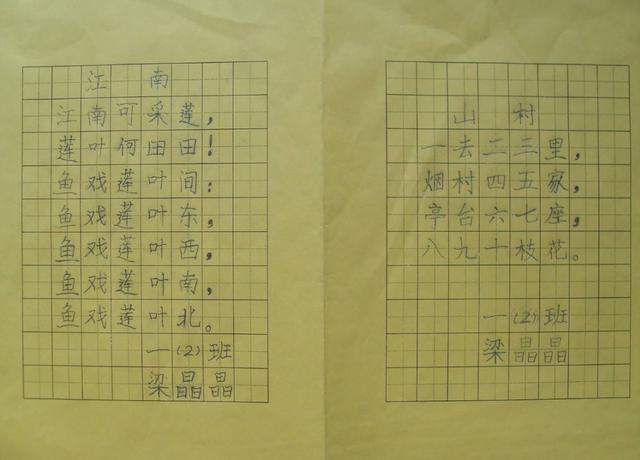 江南
江南可采莲,
莲叶何田田!
鱼戏莲叶间:
鱼戏莲叶东,
鱼戏莲叶西,
鱼戏莲叶南,
鱼戏莲叶北。
一(2)班
梁晶晶
山村
一去二三里,
烟村四五家,
亭台六七座,
八九十枝花。
一(2)班
梁晶晶